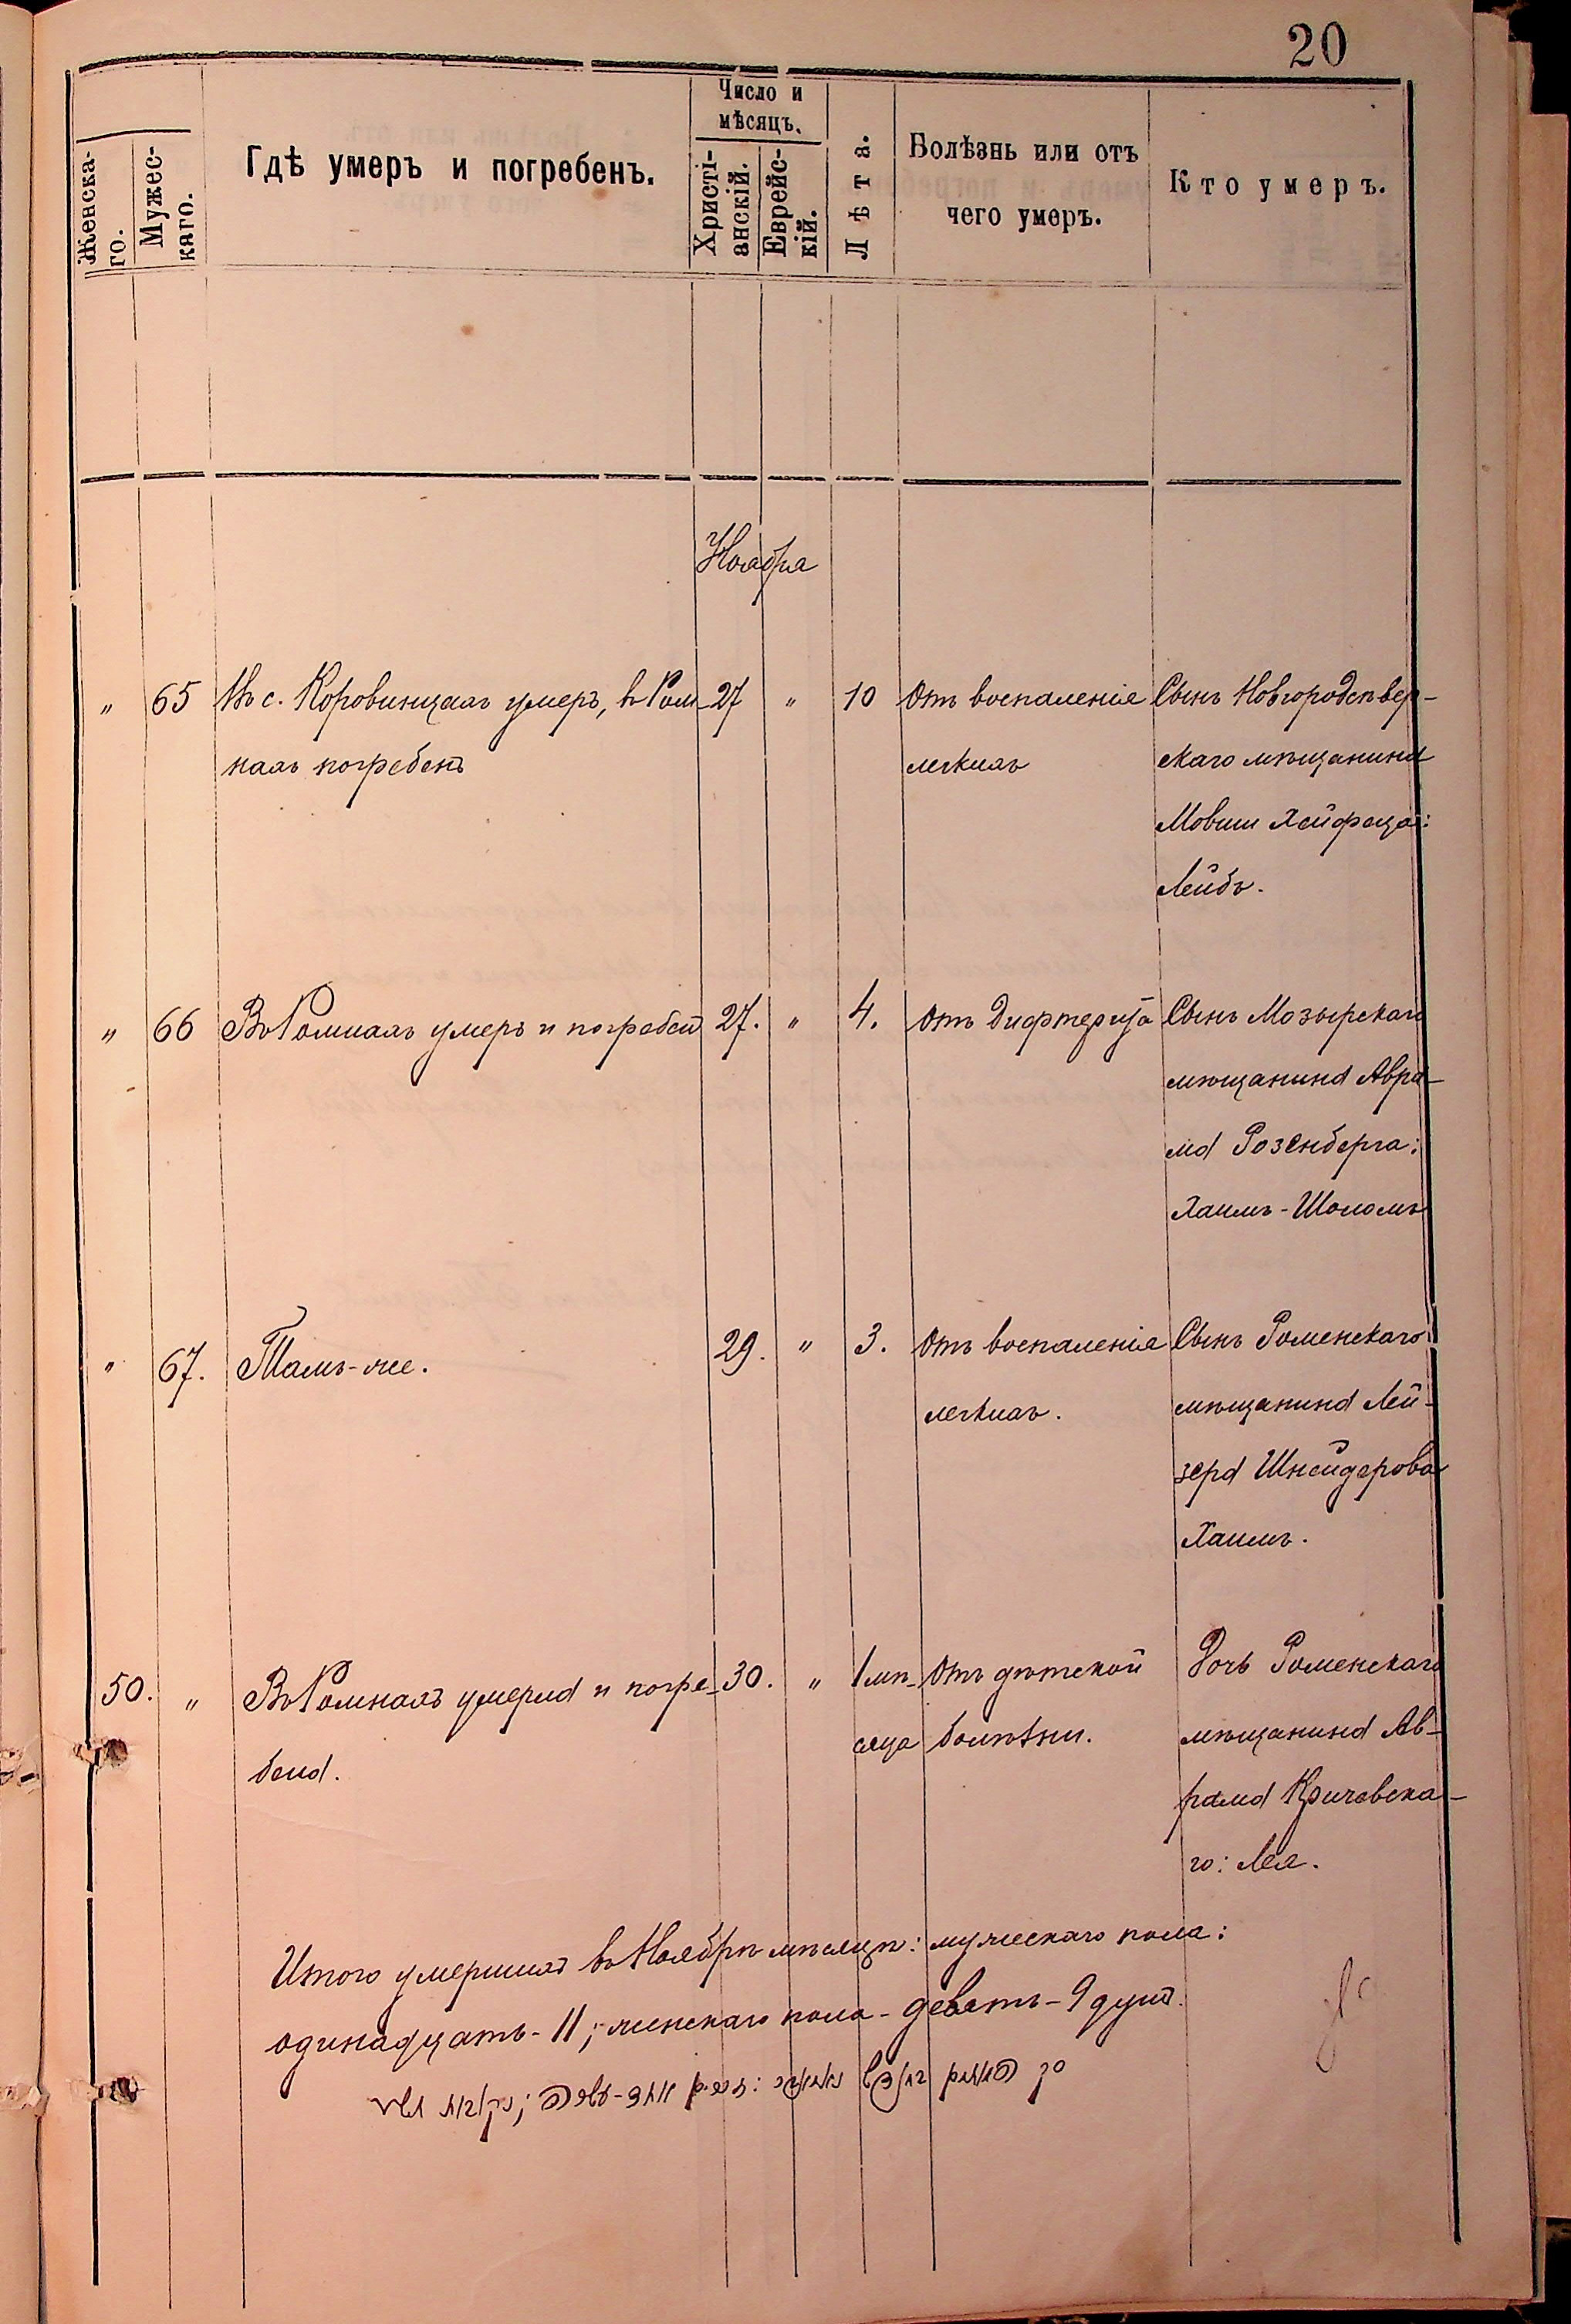 20
Женска-
го.
Мужес-
каго.
Гдѣ умеръ и погребенъ.
Число и
мѣсяцъ.
Христі-
анскій.
Еврейс-
кій.
Лѣта.
Болѣзнь или отъ
чего умеръ.
Кто умеръ.
Ноября
" 65 Въ с. Коровинцахъ умеръ, въ Ром- 27 " 10 Отъ воспаленія Сынъ Новгородсѣвер-
нахъ погребенъ легкихъ скаго мѣщанина
Мовши Хейфеца:
Лейбъ.
" 66 Въ Ромнахъ умеръ и погребенъ 27. " 4. Отъ Дифтерита Сынъ Мозырскаго
мѣщанина Авра-
ма Розенберга:
Хаимъ-Шоломъ
" 67. Тамъ-же. 29. " 3. Отъ воспаленія Сынъ Роменскаго
легкихъ. мѣщанина Лей-
зера Шнейдерова
Хаимъ.
50. " Въ Ромнахъ умерла и погре- 30. " 1 мѣ- Отъ дѣтской Дочь Роменскаго
бена. сяца болѣзни. мѣщанина Ав-
рама Кричевска-
го: Лея.
Итого умершихъ въ Ноябрѣ мѣсяцѣ: мужескаго пола:
одинадцать - 11; женскаго пола - девять - 9 душъ.